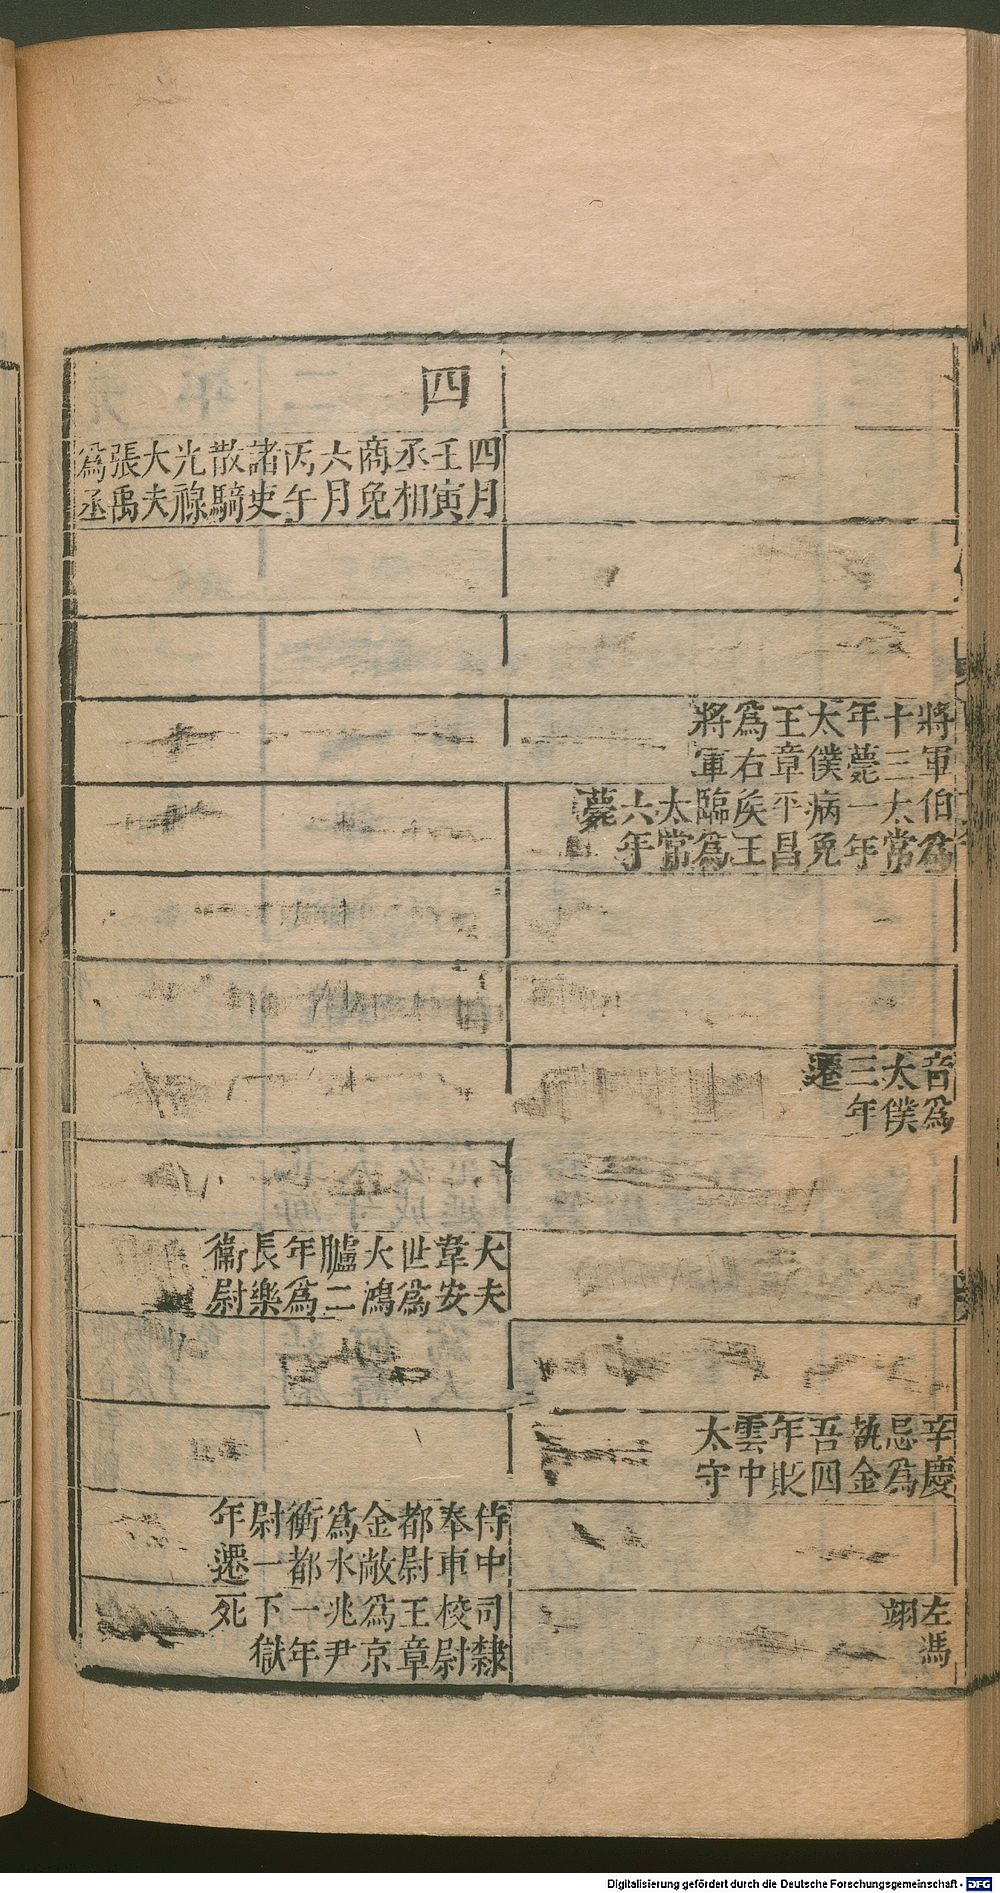 將軍
十三
年薨
太僕
王章
爲右
將軍
伯爲
太常
一年
病免
平昌
矦王
臨爲
太常
六年
薨
音爲
太僕
三年
遷
辛慶
忌爲
執金
吾四
年貶
雲中
太守
左馮
翊
四
四月
壬寅
丞相
商免
六月
丙午
諸吏
散騎
光祿
大夫
張禹
爲丞
大夫
韋安
世爲
大鴻
臚二
年爲
長樂
衞尉
侍中
奉車
都尉
金敞
爲水
衡都
尉一
年遷
司隸
校尉
王章
爲京
兆尹
一年
下獄
死
Digitalisierung gefördert durch die Deutsche Forschungsgemeinschaft - DFG